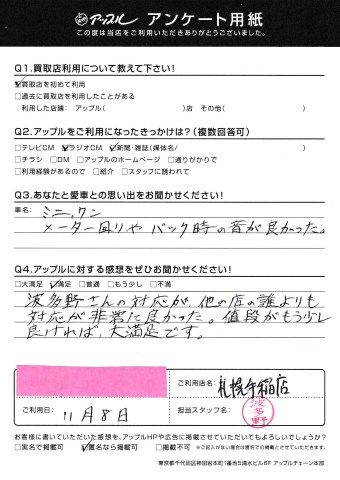 アップル アンケート用紙
この度は当店をご利用いただきありがとうございました。
Q1.買取店利用について教えて下さい!
☑買取店を初めて利用
□過去に買取店を利用したことがある
利用した店舗: アップル( )店 その他( )
Q2.アップルをご利用になったきっかけは?(複数回答可)
□テレビCM ☑ラジオCM ☑新聞・雑誌(媒体名/ )
□チラシ □DM □アップルのホームページ □通りがかりで
□利用経験があるので □紹介 □スタッフに誘われて
Q3.あなたと愛車との思い出をお聞かせください!
車名: ミニ,ワン
メーター回りや バック時の音が良かった。
Q4.アップルに対する感想をぜひお聞かせください!
□大満足 ☑満足 □普通 □もう少し □不満
波多野さんの対応が、他の店の誰よりも
対応が非常に良かった。値段がもう少し
良ければ、大満足です。
ご利用店名: 札幌手稲店
ご利用日: 11月8日
担当スタッフ名: 波多野
お客様に書いていただいた感想を、アップルHPや広告に掲載させていただいてもよろしいでしょうか?
□実名で掲載可 ☑匿名なら掲載可 □掲載不可 ※ご記入がない場合は匿名での掲載とさせていただきます。
東京都千代田区神田岩本町1番地5清水ビル6F アップルチェーン本部